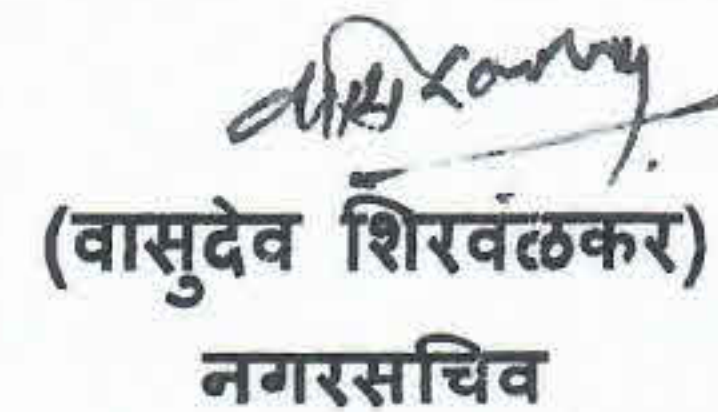 (वासुदेव शिरवंळकर)
नगरसचिव